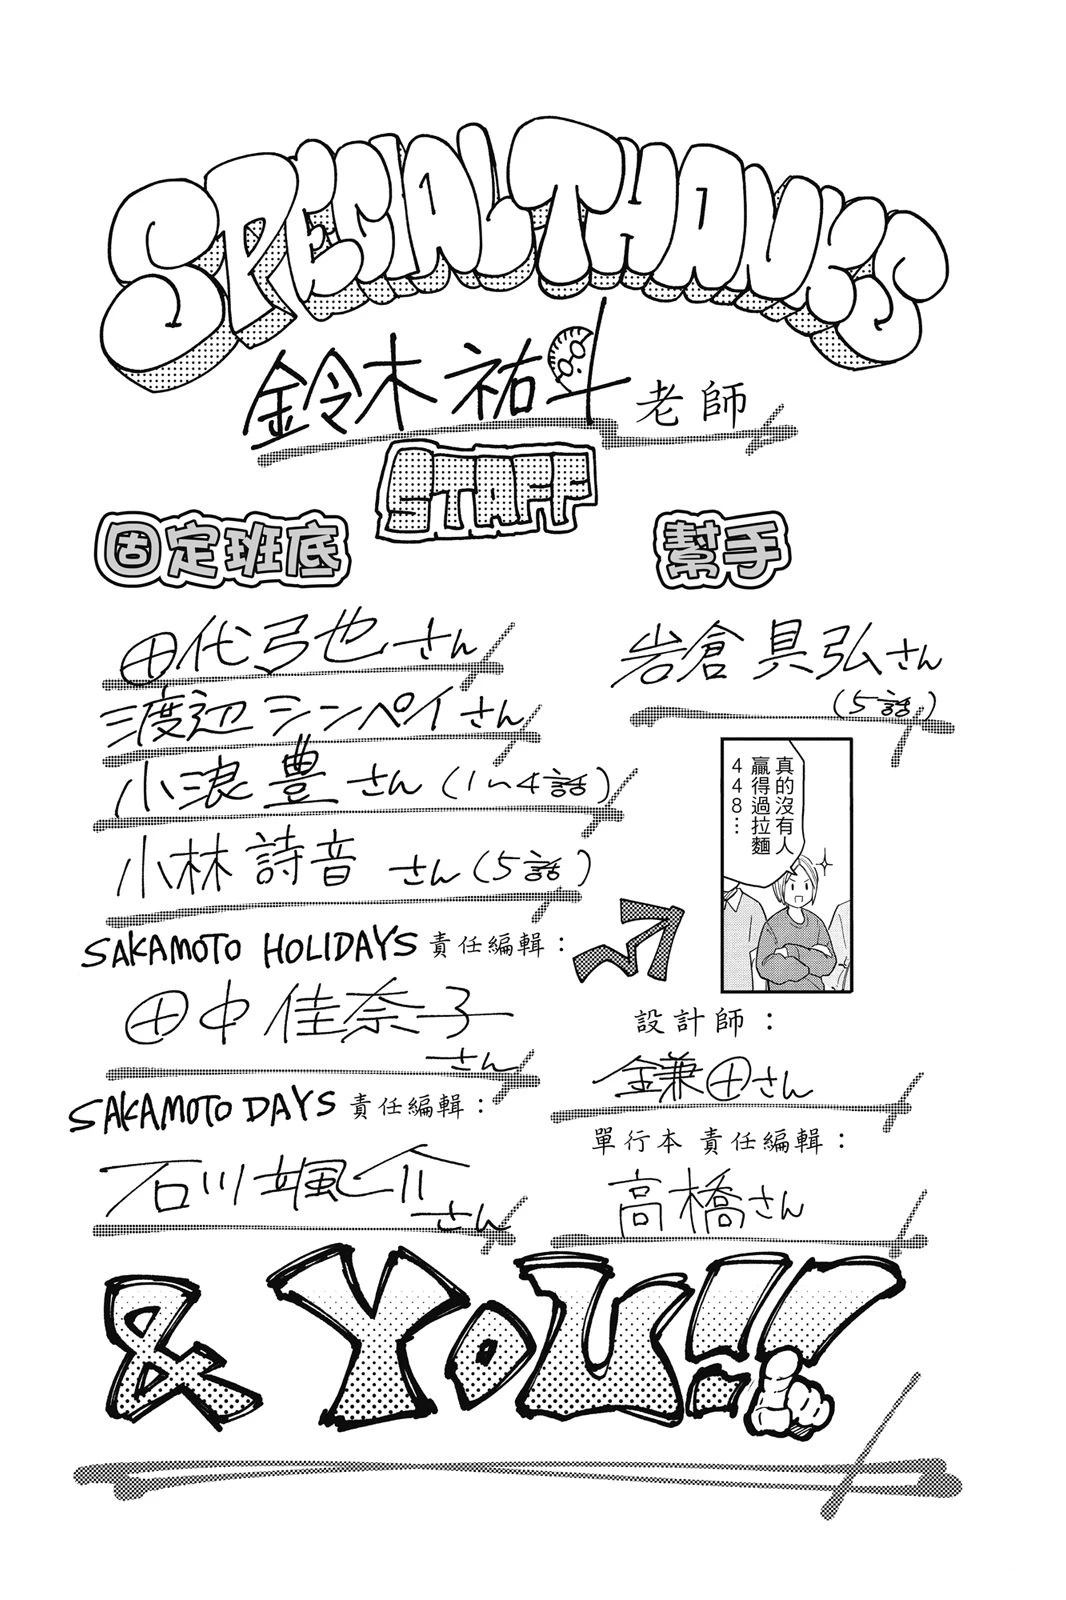 SPECIAL THANKS
鈴木祐斗老師
STAFF
固定班底
田代弓也さん
渡辺シンペイさん
小浪豊さん(1〜4話)
小林詩音さん(5話)
SAKAMOTO HOLIDAYS 責任編輯：
田中佳奈子さん
SAKAMOTO DAYS 責任編輯：
石川颯介さん
幫手
岩倉具弘さん
(5話)
真的沒有人
贏得過拉麵
448…
設計師：
鎌田さん
單行本 責任編輯：
高橋さん
& YOU!!